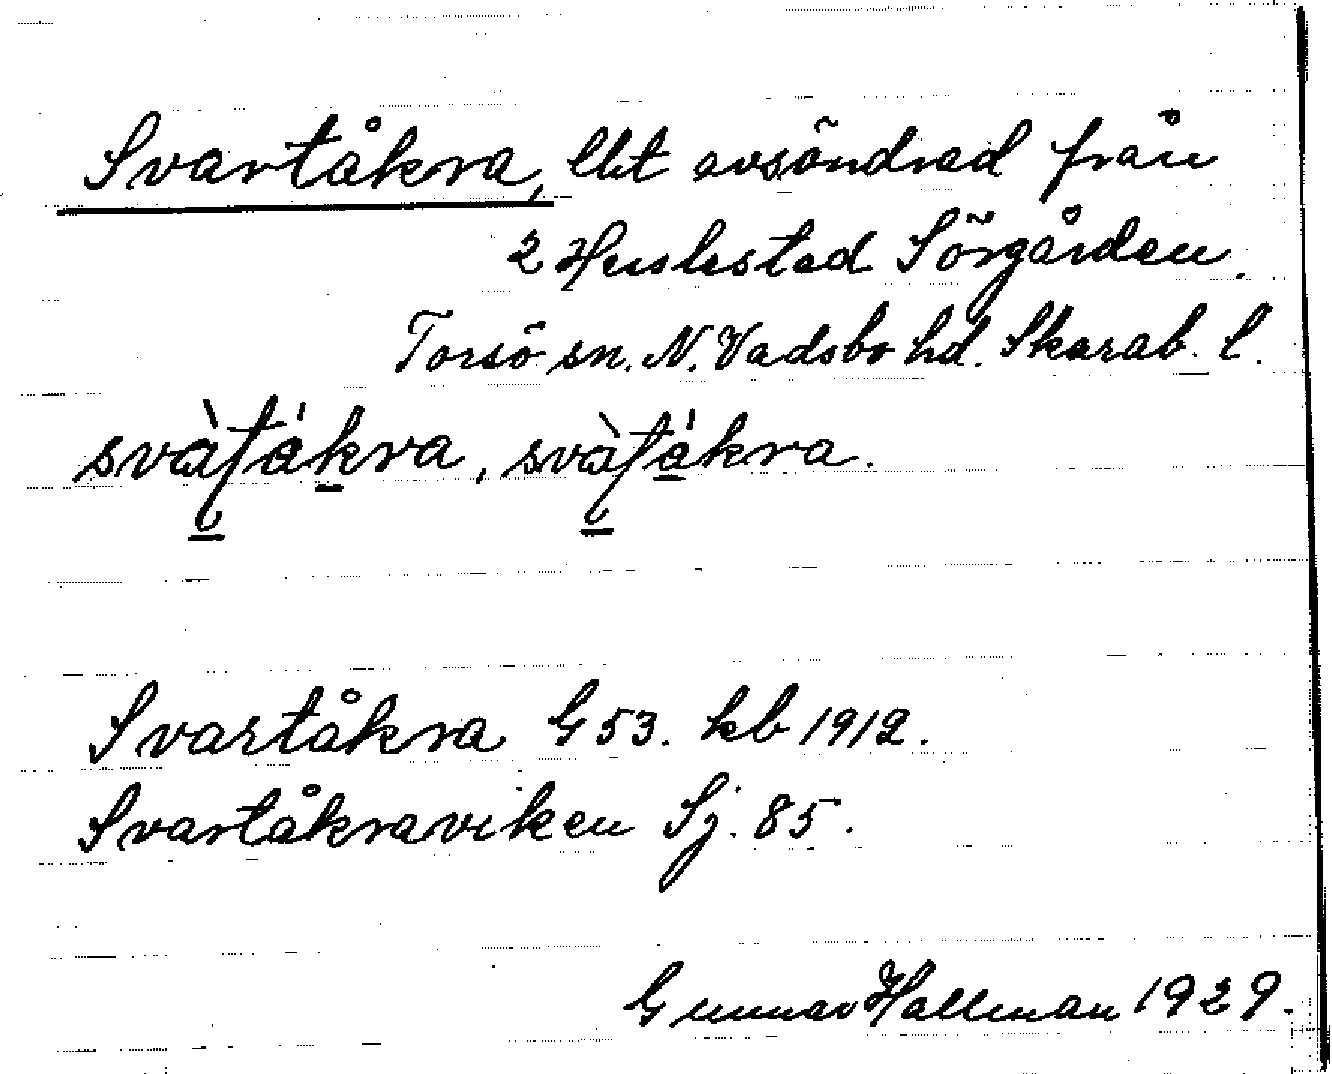 Svartåkra, lht avsöndrad från
2 Heulestad Sörgården.
Torsö sn. N. Vadsbo hd. Skarab. l.
Svartåkra G 53. kb 1912.
Svartåkraviken Sj. 85.
Gunnar Hallman 1929.